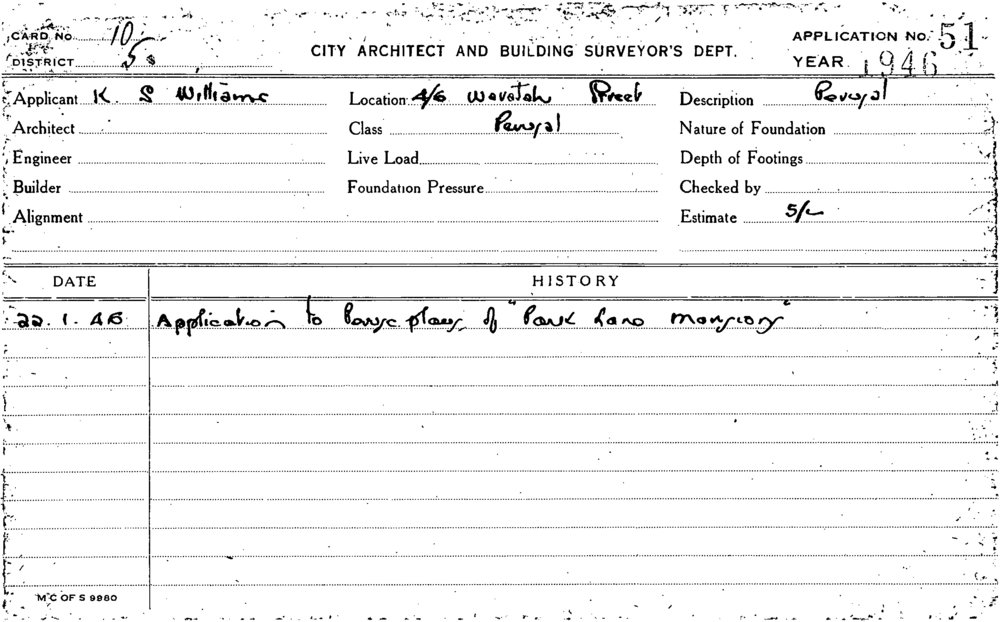 CARD No. 10.
DISTRICT 5
CITY ARCHITECT AND BUILDING SURVEYOR'S DEPT.
APPLICATION NO. 51
YEAR 1946
Applicant K. S Williams Location 4/6 Waratah Street Description Perusal
Architect Class Perusal Nature of Foundation
Engineer Live Load Depth of Footings
Builder Foundation Pressure Checked by
Alignment Estimate 5/-
DATE HISTORY
22.1.46 Application to Peruse plans of "Park Lane Mansions"
M C OF S 9980